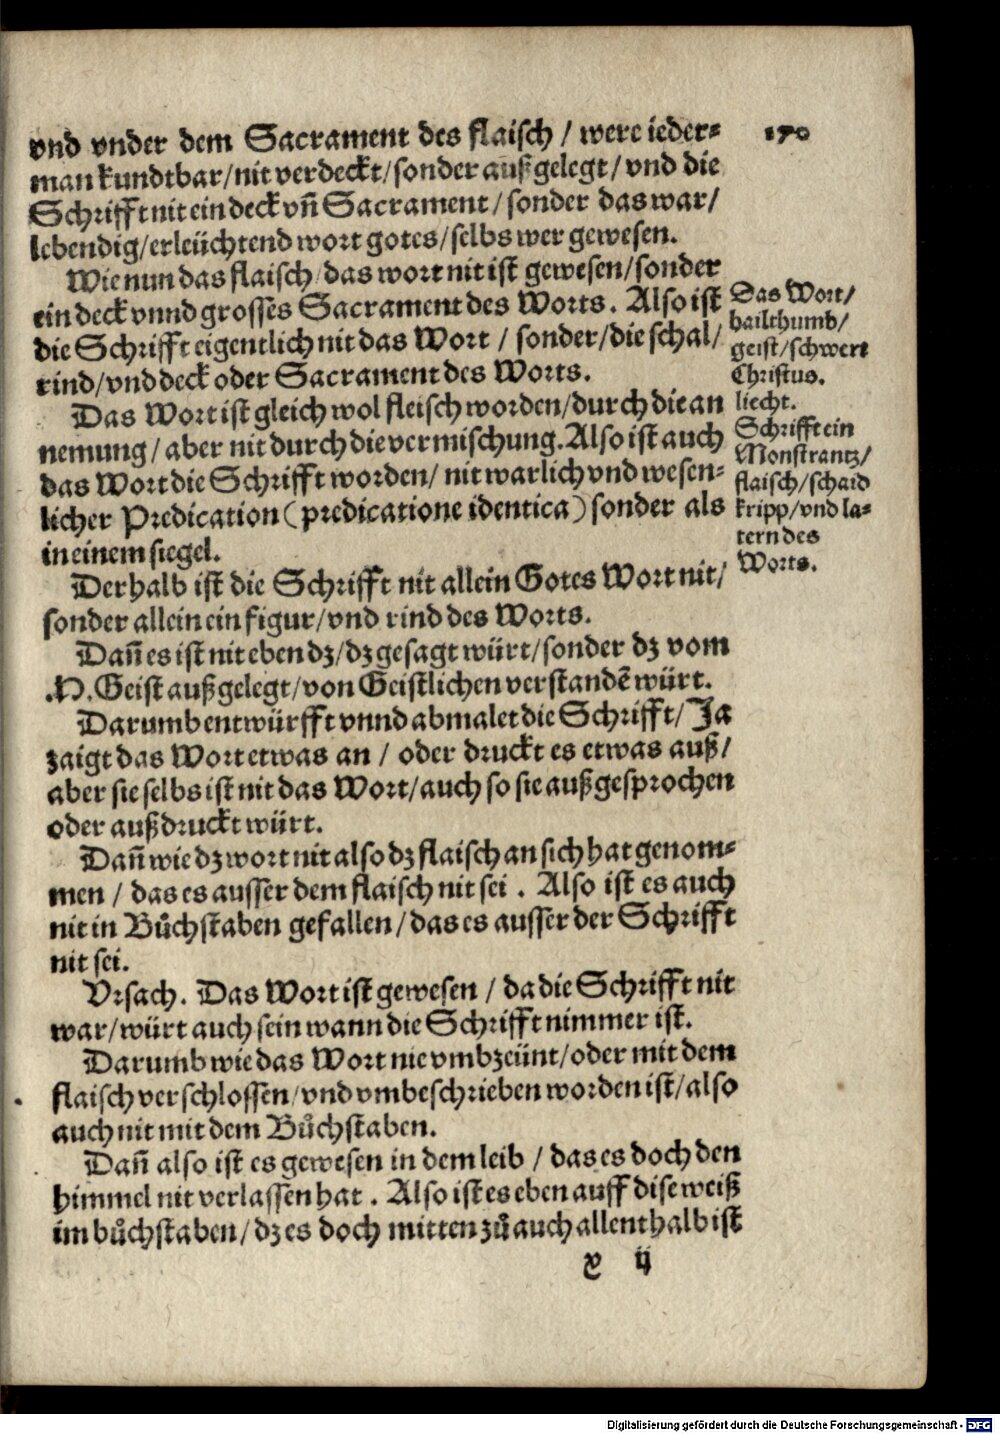 vnd vnder dem Sacrament des flaisch / were ieder⸗
170
man kundtbar/nit verdeckt/sonder außgelegt/vnd die
Schrifft nit ein deck vn̄ Sacrament/sonder das war/
lebendig/erleüchtend wort gotes/selbs wer gewesen.
Wie nun das flaisch das wort nit ist gewesen/sonder
ein deck vnnd grosses Sacrament des Worts. Also ist
die Schrifft eigentlich nit das Wort / sonder/die schal/
rind/vnd deck oder Sacrament des Worts.
Das Wort ist gleich wol fleisch worden/durch die an
nemung/aber nit durch die vermischung. Also ist auch
das Wort die Schrifft worden/nit warlich vnd wesen⸗
licher Predication (predicatione identica) sonder als
in einem sigel.
Das Wort/
hailthumb/
geist/schwert
Christus.
liecht.
Schrifft ein
Monstrantz/
flaisch/schaid
kripp/vnd la⸗
tern des
Worts.
Derhalb ist die Schrifft nit allein Gotes Wort nit/
sonder allein ein figur/vnd rind des Worts.
Dan̄ es ist nit eben dz/dz gesagt würt/sonder dz vom
.H. Geist außgelegt/von Geistlichen verstandē würt.
Darumb entwürfft vnnd abmalet die Schrifft/Ja
zaigt das Wort etwas an / oder druckt es etwas auß/
aber sie selbs ist nit das Wort/auch so sie außgesprochen
oder außdruckt würt.
Dan̄ wie dz wort nit also dz flaisch an sich hat genom⸗
men / das es ausser dem flaisch nit sei . Also ist es auch
nit in Bůchstaben gefallen/das es ausser der Schrifft
nit sei.
Vrsach. Das Wort ist gewesen / da die Schrifft nit
war/würt auch sein wann die Schrifft nimmer ist.
Darumb wie das Wort nie vmbzeünt/oder mit dem
flaisch verschlossen/vnd vmbeschrieben worden ist/also
auch nit mit dem Bůchstaben.
Dan̄ also ist es gewesen in dem leib / das es doch den
himmel nit verlassen hat . Also ist es eben auff dise weiß
im bůchstaben/dz es doch mitten zů auch allenthalb ist
y ij
Digitalisierung gefördert durch die Deutsche Forschungsgemeinschaft - DFG